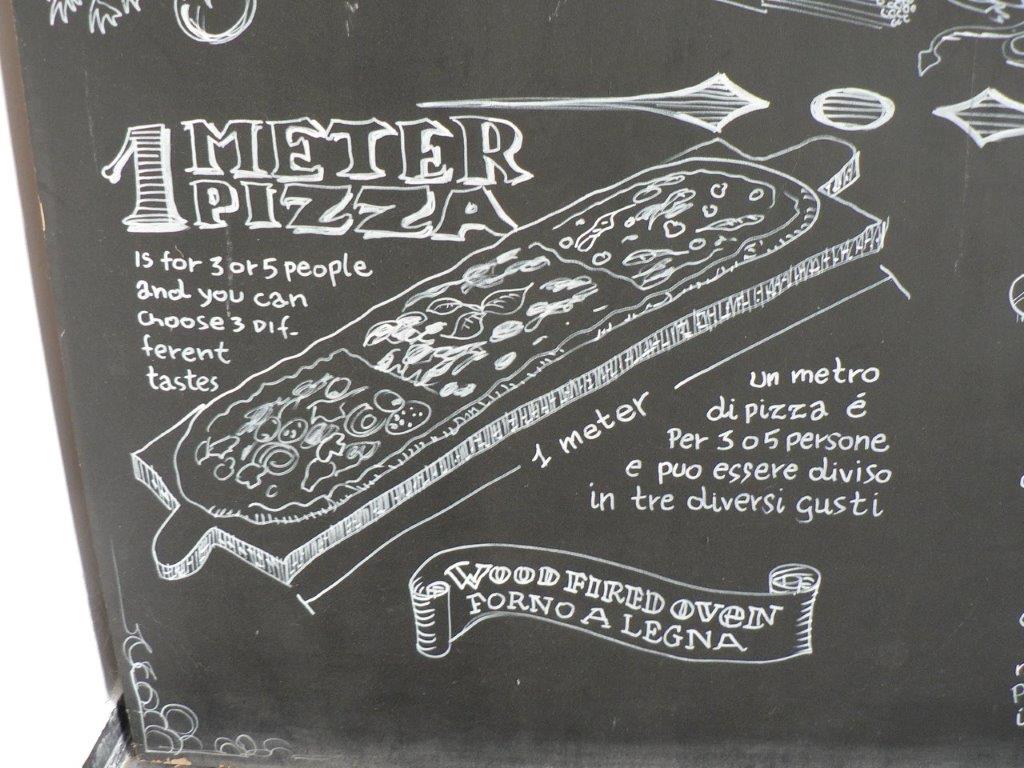 1 METER
PIZZA
Is for 3 or 5 people
and you can
choose 3 Dif-
ferent
tastes
1 meter
un metro
di pizza é
Per 3 o 5 persone
e puo essere diviso
in tre diversi gusti
WOOD FIRED OVEN
FORNO A LEGNA